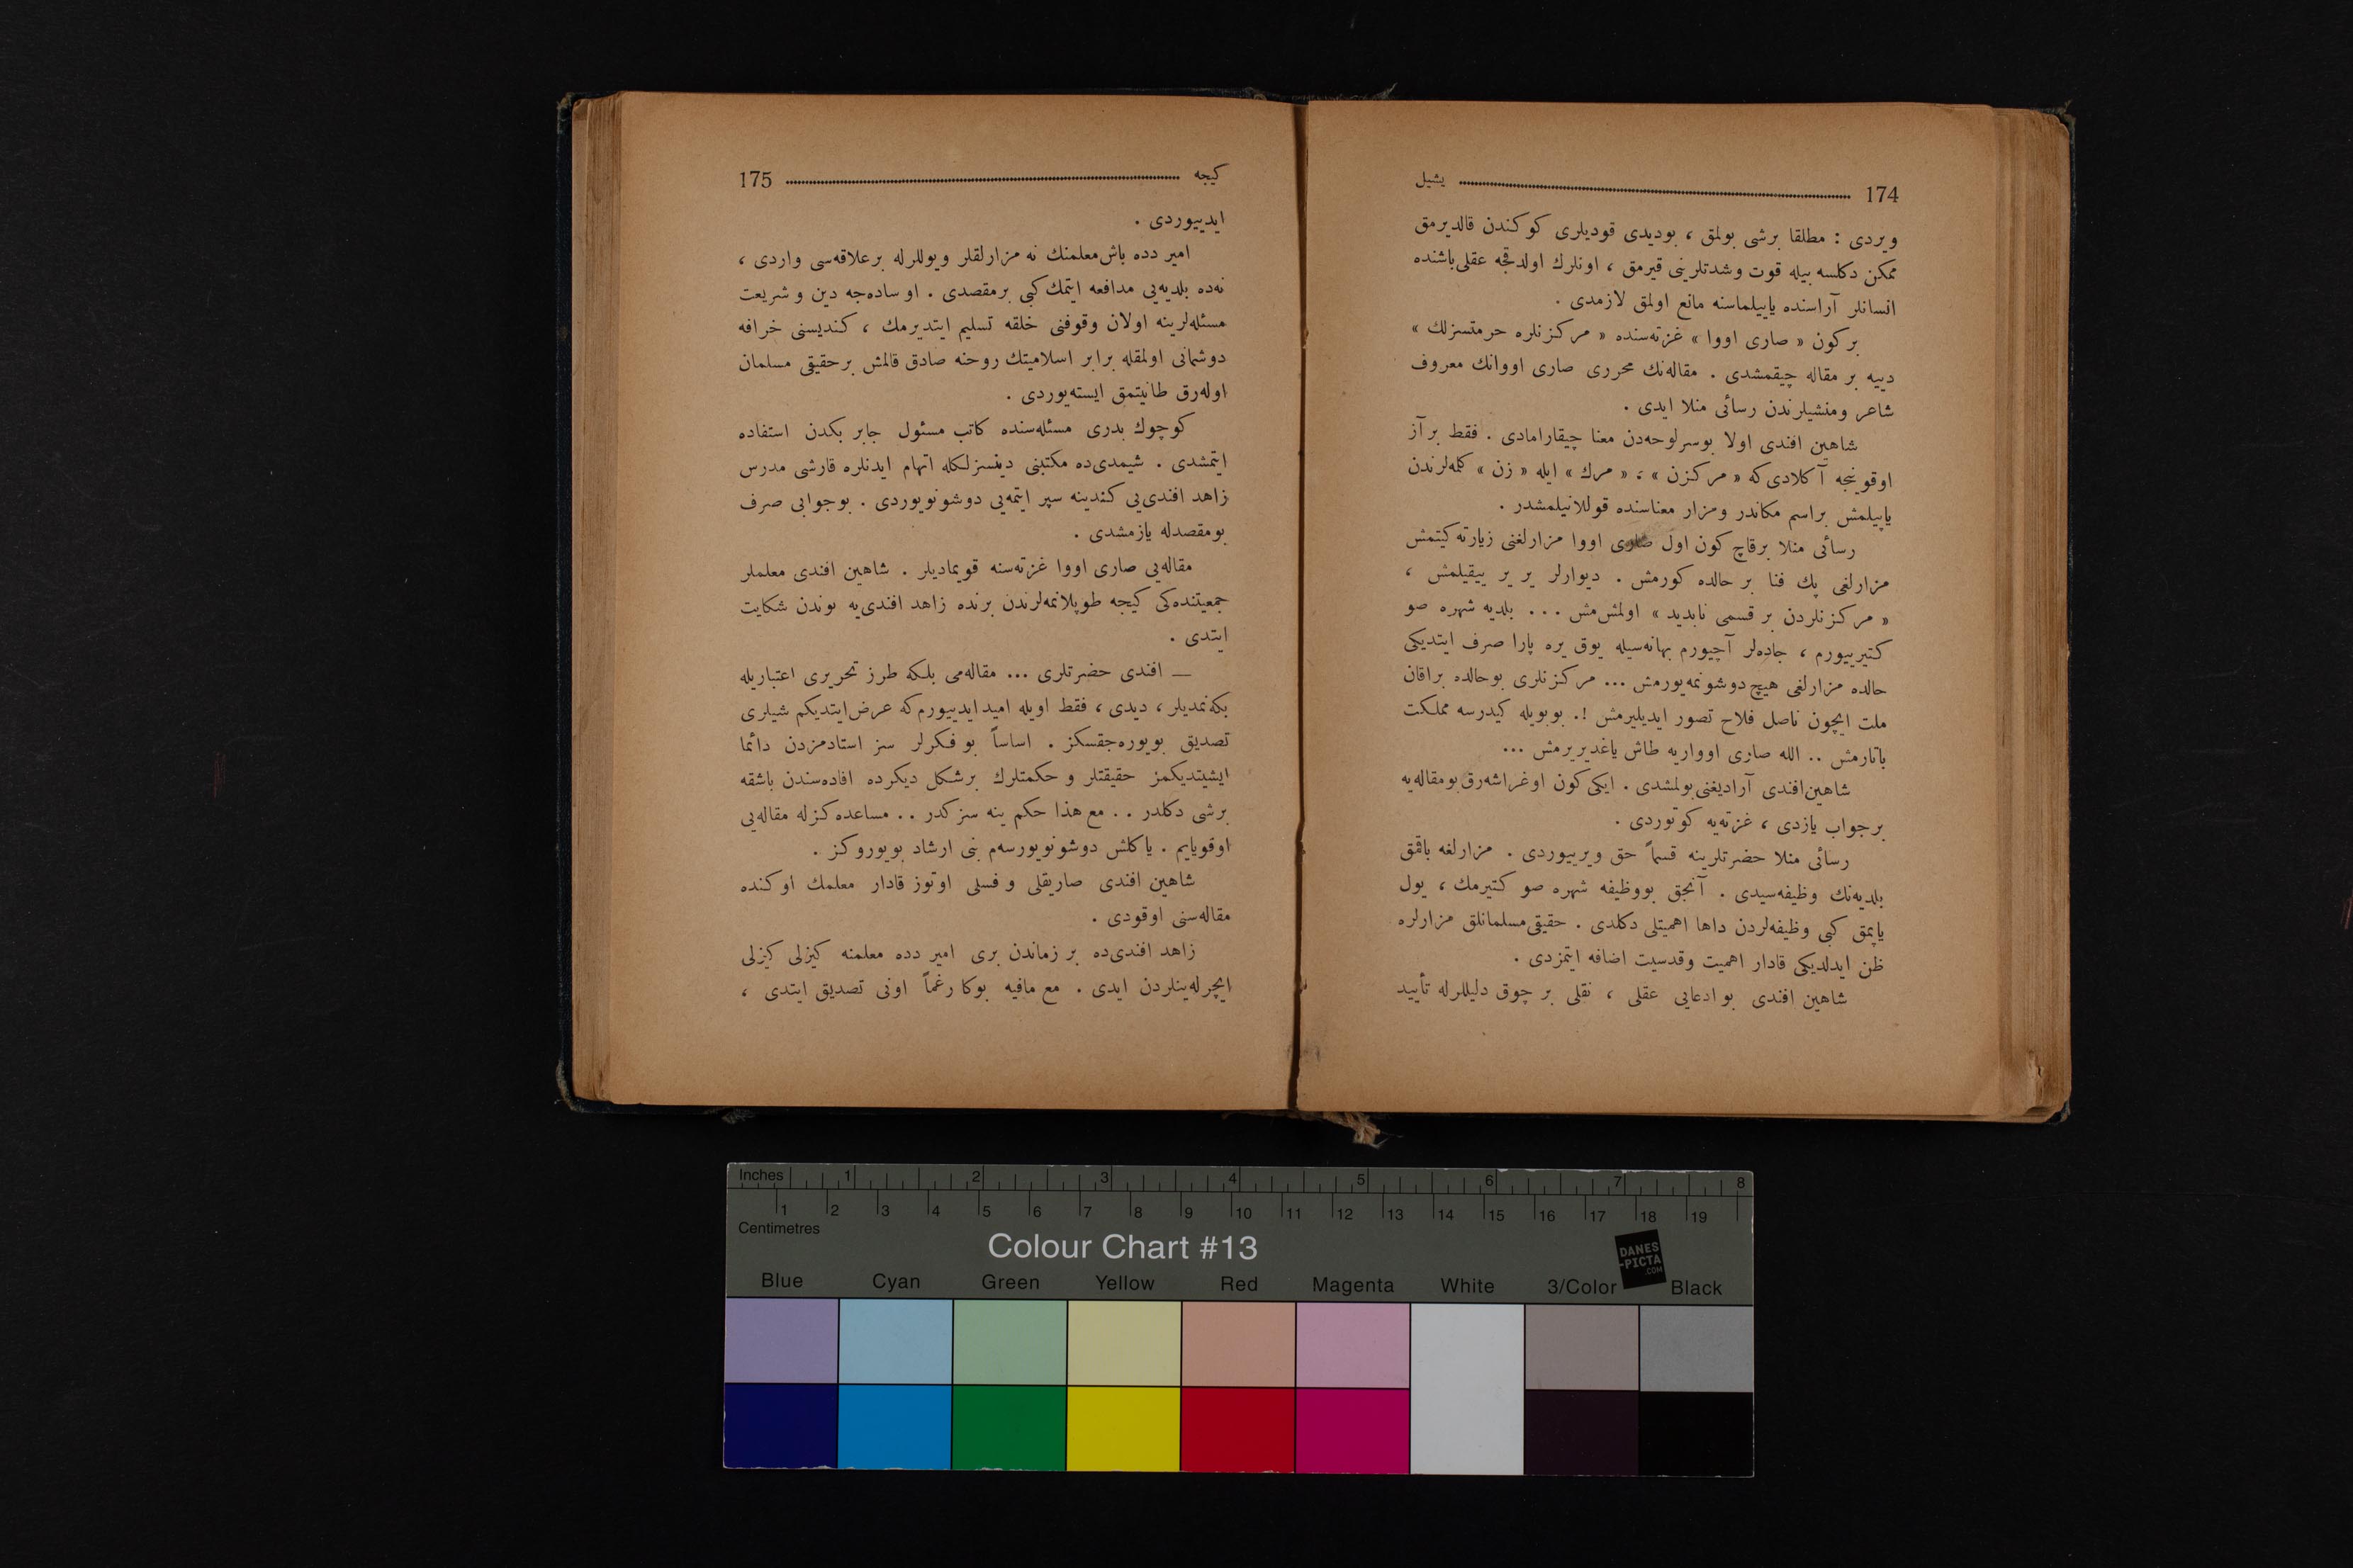 174 يشيل
ويردی : مطلقا برشی بولمق ، بوديدی قوديلری كوكندن قالديرمق
ممكن دكلسه بيله قوت وشدتلرينی قيرمق ، اونلرك اولدقجه عقلی‌باشنده
انسانلر آراسنده ياييلماسنه مانع اولمق لازمدی .
بركون « صاری اووا » غزته‌سنده « مركزنلره حرمتسزلك »
دييه بر مقاله چيقمشدی . مقاله‌نك محرری صاری اووانك معروف
شاعر ومنشيلرندن رسائی منلا ايدی .
شاهين افندی اولا بوسرلوحه‌دن معنا چيقارامادی . فقط برآز
اوقوينجه آكلادی‌كه « مركزن » ؛ « مرك » ايله « زن » كلمه‌لرندن
ياپيلمش براسم مكاندر ومزار معناسنده قوللانيلمشدر .
رسائی منلا برقاچ كون اول صاری اووا مزارلغنی زيارته كيتمش
مزارلغی پك فنا بر حالده كورمش . ديوارلر ير ير ييقيلمش ،
« مركزنلردن بر قسمی نابديد » اولمش‌مش ... بلديه شهره صو
كتيرييورم ، جاده‌لر آچيورم بهانه‌سيله يوق يره پارا صرف ايتديكی
حالده مزارلغی هيچ دوشونمه‌يورمش ... مركزنلری بوحالده براقان
ملت ايچون ناصل فلاح تصور ايديليرمش !. بوبويله كيدرسه مملكت
باتارمش .. الله صاری اوواريه طاش ياغديريرمش ...
شاهين‌افندی آراديغنی بولمشدی . ايكی كون اوغراشه‌رق بومقاله‌يه
برجواب يازدی ، غزته‌يه كوتوردی .
رسائی منلا حضرتلرينه قسماً حق ويرييوردی . مزارلغه باقمق
بلديه‌نك وظيفه‌سيدی . آنجق بووظيفه شهره صو كتيرمك ، يول
ياپمق كبی وظيفه‌لردن داها اهميتلی دكلدی . حقيقی‌مسلمانلق مزارلره
ظن ايدلديكی قادار اهميت وقدسيت اضافه ايتمزدی .
شاهين افندی بو ادعايی عقلی ، نقلی بر چوق دليللرله تأييد
كيجه 175
ايدييوردی .
امير دده باش‌معلمنك نه مزارلقلر ويوللرله برعلاقه‌سی واردی ،
نه‌ده بلديه‌يی مدافعه ايتمك كبی برمقصدی . او ساده‌جه دين و شريعت
مسئله‌لرينه اولان وقوفنی خلقه تسليم ايتديرمك ، كنديسنی خرافه
دوشمانی اولمقله برابر اسلاميتك روحنه صادق قالمش برحقيقی مسلمان
اوله‌رق طانيتمق ايسته‌يوردی .
كوچوك بدری مسئله‌سنده كاتب مسئول جابر بكدن استفاده
ايتمشدی . شيمدی‌ده مكتبنی دينسزلكله اتهام ايدنلره قارشی مدرس
زاهد افندی‌يی كندينه سپر ايتمه‌يی دوشونويوردی . بوجوابی صرف
بومقصدله يازمشدی .
مقاله‌يی صاری اووا غزته‌سنه قويماديلر . شاهين افندی معلملر
جمعيتنده‌كی كيجه طوپلانمه‌لرندن برنده زاهد افندی‌يه بوندن شكايت
ايتدی .
— افندی حضرتلری ... مقاله‌می بلكه طرز تحريری اعتباريله
بكه‌نمديلر ، ديدی ، فقط اويله اميد ايدييورم‌كه عرض‌ايتديكم شيلری
تصديق بويوره‌جقسكز . اساساً بو فكرلر سز استادمزدن دائما
ايشيتديكمز حقيقتلر و حكمتلرك برشكل ديكرده افاده‌سندن باشقه
برشی دكلدر .. مع هذا حكم ينه سزكدر .. مساعده‌كزله مقاله‌يی
اوقويايم . ياكلش دوشونويورسه‌م بنی ارشاد بويوروكز .
شاهين افندی صاريقلی و فسلی اوتوز قادار معلمك اوكنده
مقاله‌سنی اوقودی .
زاهد افندی‌ده بر زماندن بری امير دده معلمنه كيزلی كيزلی
ايچرله‌ينلردن ايدی . مع مافيه بوكا رغماً اونی تصديق ايتدی ،
Inches 1 2 3 4 5 6 7 8
1 2 3 4 5 6 7 8 9 10 11 12 13 14 15 16 17 18 19
Centimetres
Colour Chart #13
DANES
-PICTA
.COM
Blue Cyan Green Yellow Red Magenta White 3/Color Black